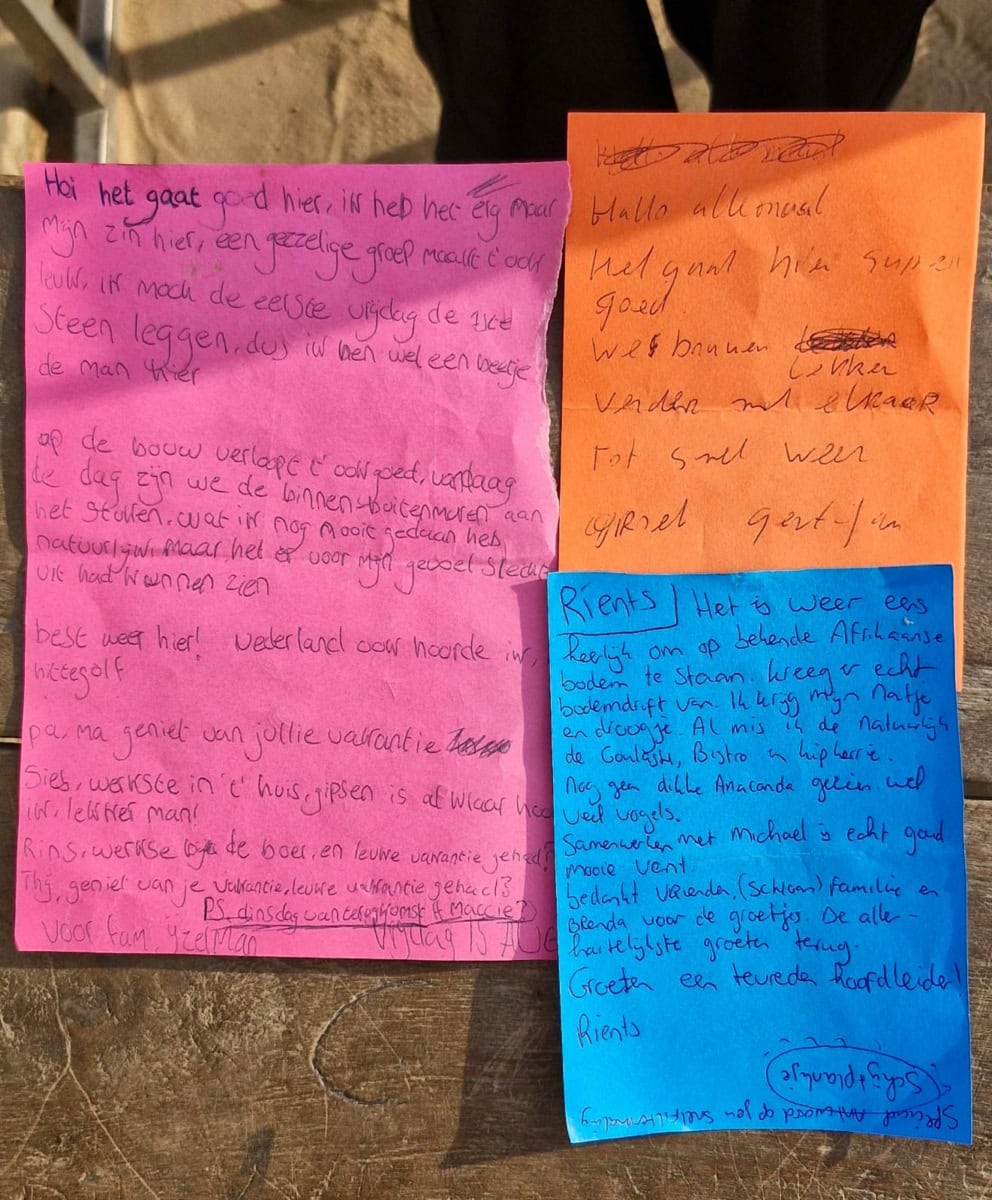 Hoi het gaat goed hier, ik heb het erg maar
Mijn zin hier, een gezzelige groep maakt t ook
leuk, ik moch de eerste vrijdag de 1ste
Steen leggen, dus ik ben wel een beetje
de man hier
op de bouw verloopt t' ook goed, vandaag
de dag zijn we de binnen-buitenmuren aan
het stuken, wat ik nog nooit gedaan heb
natuurlijk, maar het er voor mijn gevoel slecht
uit had kunnen zien
best weer hier! Nederland ook hoorde ik,
hittegolf
pa, ma geniet van jullie vakantie
Sies, werkste in 't' huis, gipsen is af klaar
ik, lekkers man!
Rins, werkse de boer, en leuke vakantie gehad?
Thij, geniet van je vakantie, leuke vakantie gehad?
PS. dinsdag van terugkomst # Maccie?
voor fam. ijzelman Vrijdag 15 AUG
Hallo allemaal
Het gaat hier super
goed.
We bouwen
lekker
verder met elkaar
Tot snel weer
gert-jan
Rients Het is weer eens
heerlijk om op bekende Afrikaanse
bodem te staan. Kreeg er echt
bodemdrift van. Ik krijg mijn natje
en droogje. Al mis ik de natuurlijk
de Bistro n kipkerrie.
Nog geen dikke Anaconda gezien wel
veel vogels.
Samenwerken met Michael is echt goud
mooie vent.
bedankt vrienden, (schoon) familie en
Brenda voor de groetjes. De aller-
hartelijkste groeten terug.
Groeten een tevreden hoofdleider!
Rients
Schijtplankje
Speciaal Antwoord op jen